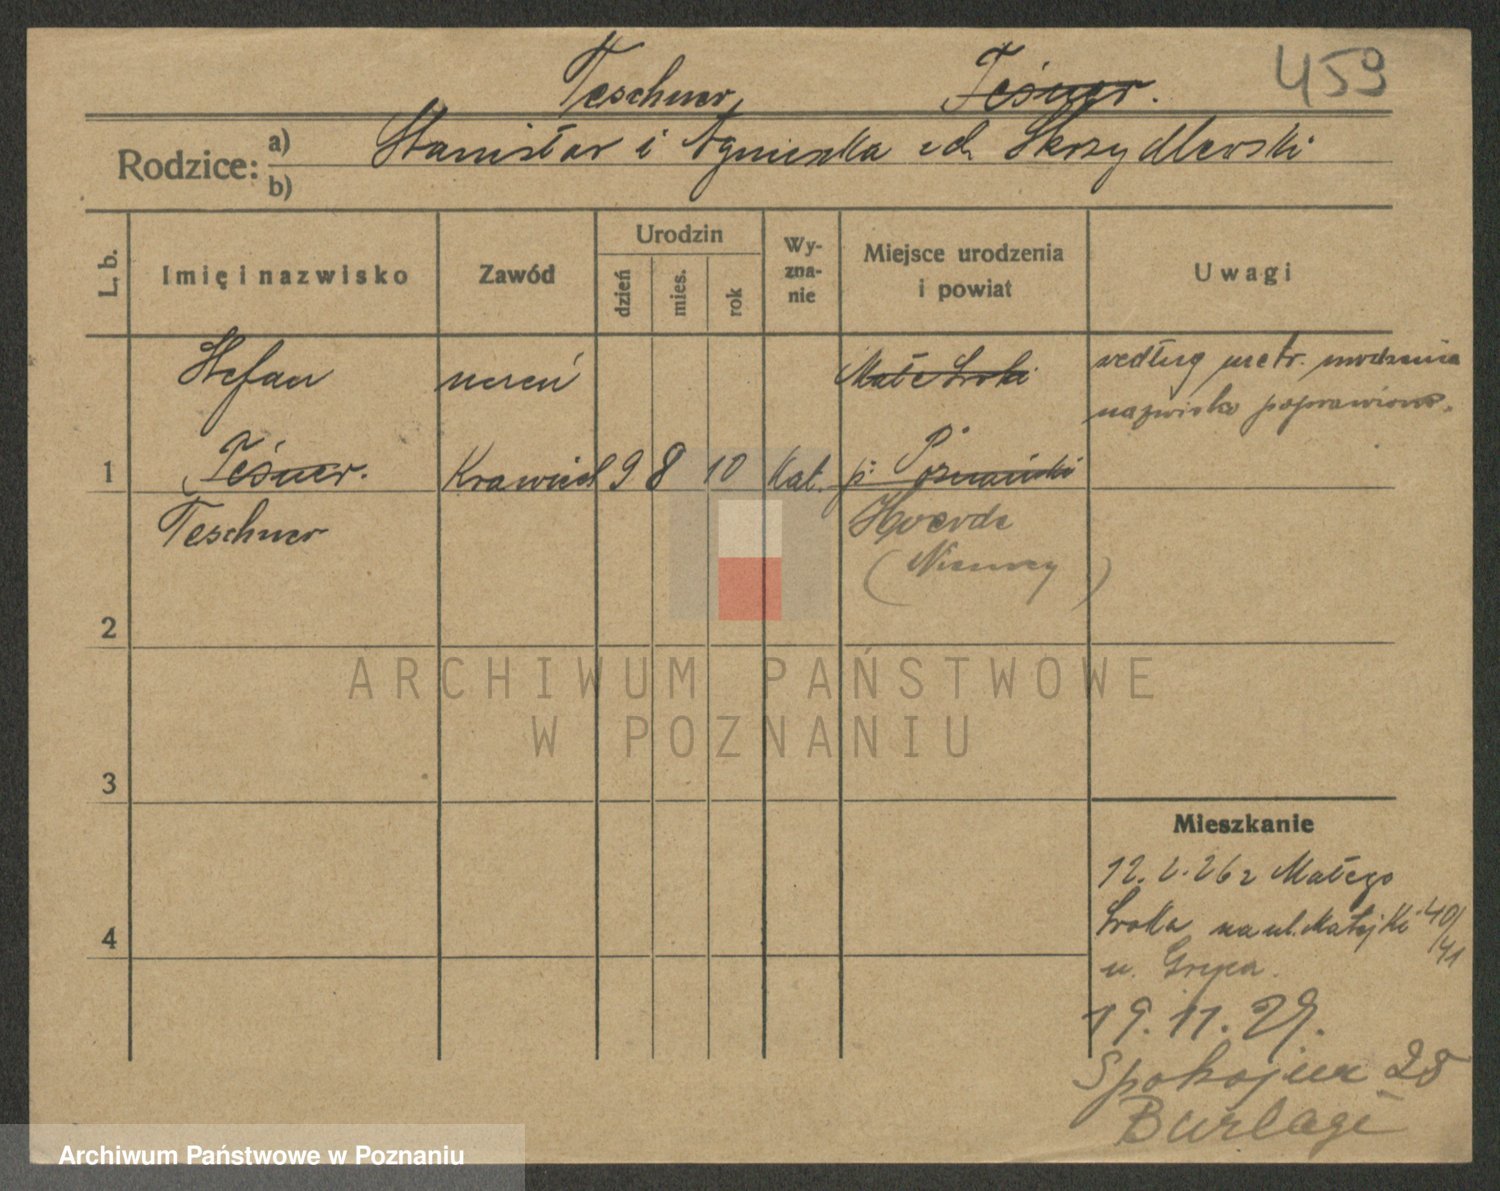 Teschner Teśner. 459
Rodzice: a) Stanisław i Agnieszka z d. Skrzydlewski
b)
L. b.
Imię i nazwisko
Zawód
Urodzin
dzień
mies.
rok
Wy-
zna-
nie
Miejsce urodzenia
i powiat
Uwagi
Stefan uczeń Małe Sroki według metr. urodzenia
nazwisko poprawiono.
1 Teśner. Krawiecki 9 8 10 Kat. p. Poznański
Teschner
(Niemcy)
2
ARCHIWUM PAŃSTWOWE
W POZNANIU
3
Mieszkanie
12.2.26 z Małego
Sroka na ul. Matejki 40/
41
4
u.
19.11.29.
Spokojna 28
Burlagi
Archiwum Państwowe w Poznaniu